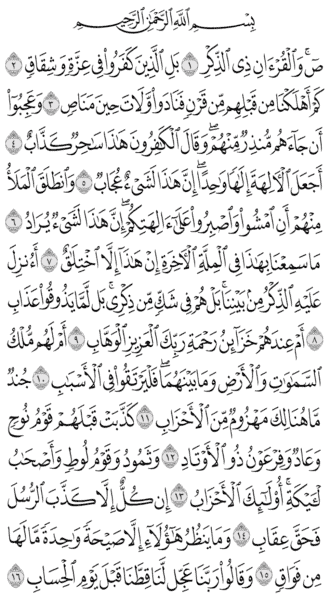 بِسْمِ ٱللَّهِ ٱلرَّحْمَٰنِ ٱلرَّحِيمِ
صٓ ۚ وَٱلْقُرْءَانِ ذِى ٱلذِّكْرِ ١ بَلِ ٱلَّذِينَ كَفَرُوا۟ فِى عِزَّةٍ وَشِقَاقٍ ٢
كَمْ أَهْلَكْنَا مِن قَبْلِهِم مِّن قَرْنٍ فَنَادَوا۟ وَّلَاتَ حِينَ مَنَاصٍ ٣ وَعَجِبُوٓا۟
أَن جَآءَهُم مُّنذِرٌ مِّنْهُمْ ۖ وَقَالَ ٱلْكَٰفِرُونَ هَٰذَا سَٰحِرٌ كَذَّابٌ ٤
أَجَعَلَ ٱلْءَالِهَةَ إِلَٰهًا وَٰحِدًا ۖ إِنَّ هَٰذَا لَشَىْءٌ عُجَابٌ ٥ وَٱنطَلَقَ ٱلْمَلَأُ
مِنْهُمْ أَنِ ٱمْشُوا۟ وَٱصْبِرُوا۟ عَلَىٰٓ ءَالِهَتِكُمْ ۖ إِنَّ هَٰذَا لَشَىْءٌ يُرَادُ ٦
مَا سَمِعْنَا بِهَٰذَا فِى ٱلْمِلَّةِ ٱلْءَاخِرَةِ إِنْ هَٰذَآ إِلَّا ٱخْتِلَٰقٌ ٧ أَءُنزِلَ
عَلَيْهِ ٱلذِّكْرُ مِنۢ بَيْنِنَا ۚ بَلْ هُمْ فِى شَكٍّ مِّن ذِكْرِى ۖ بَل لَّمَّا يَذُوقُوا۟ عَذَابِ
٨ أَمْ عِندَهُمْ خَزَآئِنُ رَحْمَةِ رَبِّكَ ٱلْعَزِيزِ ٱلْوَهَّابِ ٩ أَمْ لَهُم مُّلْكُ
ٱلسَّمَٰوَٰتِ وَٱلْأَرْضِ وَمَا بَيْنَهُمَا ۖ فَلْيَرْتَقُوا۟ فِى ٱلْأَسْبَٰبِ ١٠ جُندٌ
مَّا هُنَالِكَ مَهْزُومٌ مِّنَ ٱلْأَحْزَابِ ١١ كَذَّبَتْ قَبْلَهُمْ قَوْمُ نُوحٍ
وَعَادٌ وَفِرْعَوْنُ ذُو ٱلْأَوْتَادِ ١٢ وَثَمُودُ وَقَوْمُ لُوطٍ وَأَصْحَٰبُ
لْـَٔيْكَةِ ۚ أُو۟لَٰٓئِكَ ٱلْأَحْزَابُ ١٣ إِن كُلٌّ إِلَّا كَذَّبَ ٱلرُّسُلَ
فَحَقَّ عِقَابِ ١٤ وَمَا يَنظُرُ هَٰٓؤُلَآءِ إِلَّا صَيْحَةً وَٰحِدَةً مَّا لَهَا
مِن فَوَاقٍ ١٥ وَقَالُوا۟ رَبَّنَا عَجِّل لَّنَا قِطَّنَا قَبْلَ يَوْمِ ٱلْحِسَابِ ١٦